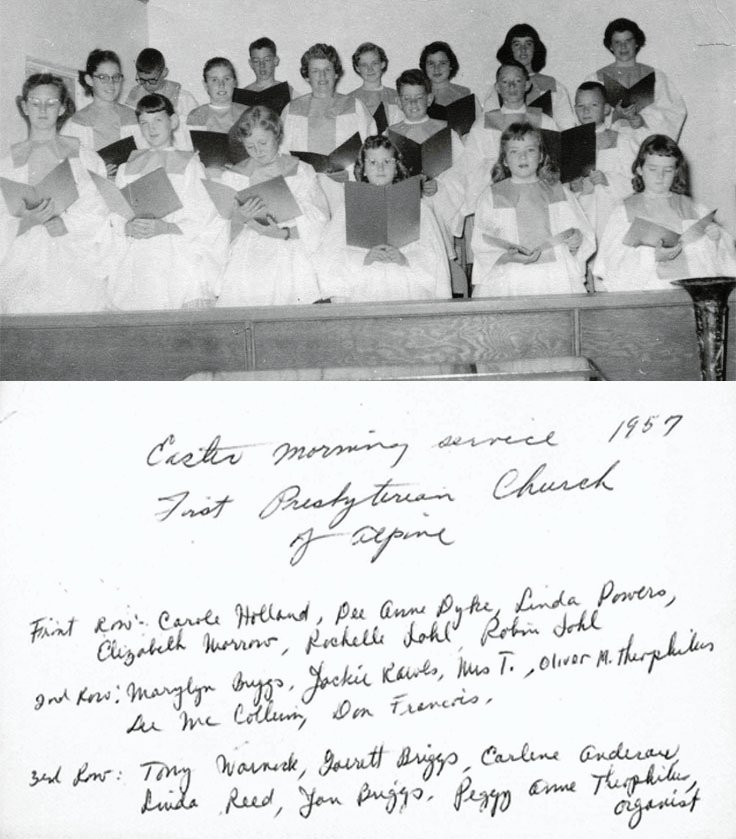 Easter morning service 1957
First Presbyterian Church
of Alpine
Front Row:- Carole Holland, Dee Anne Dyke, Linda Powers,
Elizabeth Morrow, Rochelle Sohl Robin Sohl
2nd Row: Marylyn Briggs, Jackie Kawls, Mrs T., Oliver M. Theophilus
Lee Mc Collum, Don Francois,
3rd Row: Tony Warnock, Garrett Briggs, Carlene Anderau,
Linda Reed, Jan Briggs. Peggy Anne Theophilus,
organist